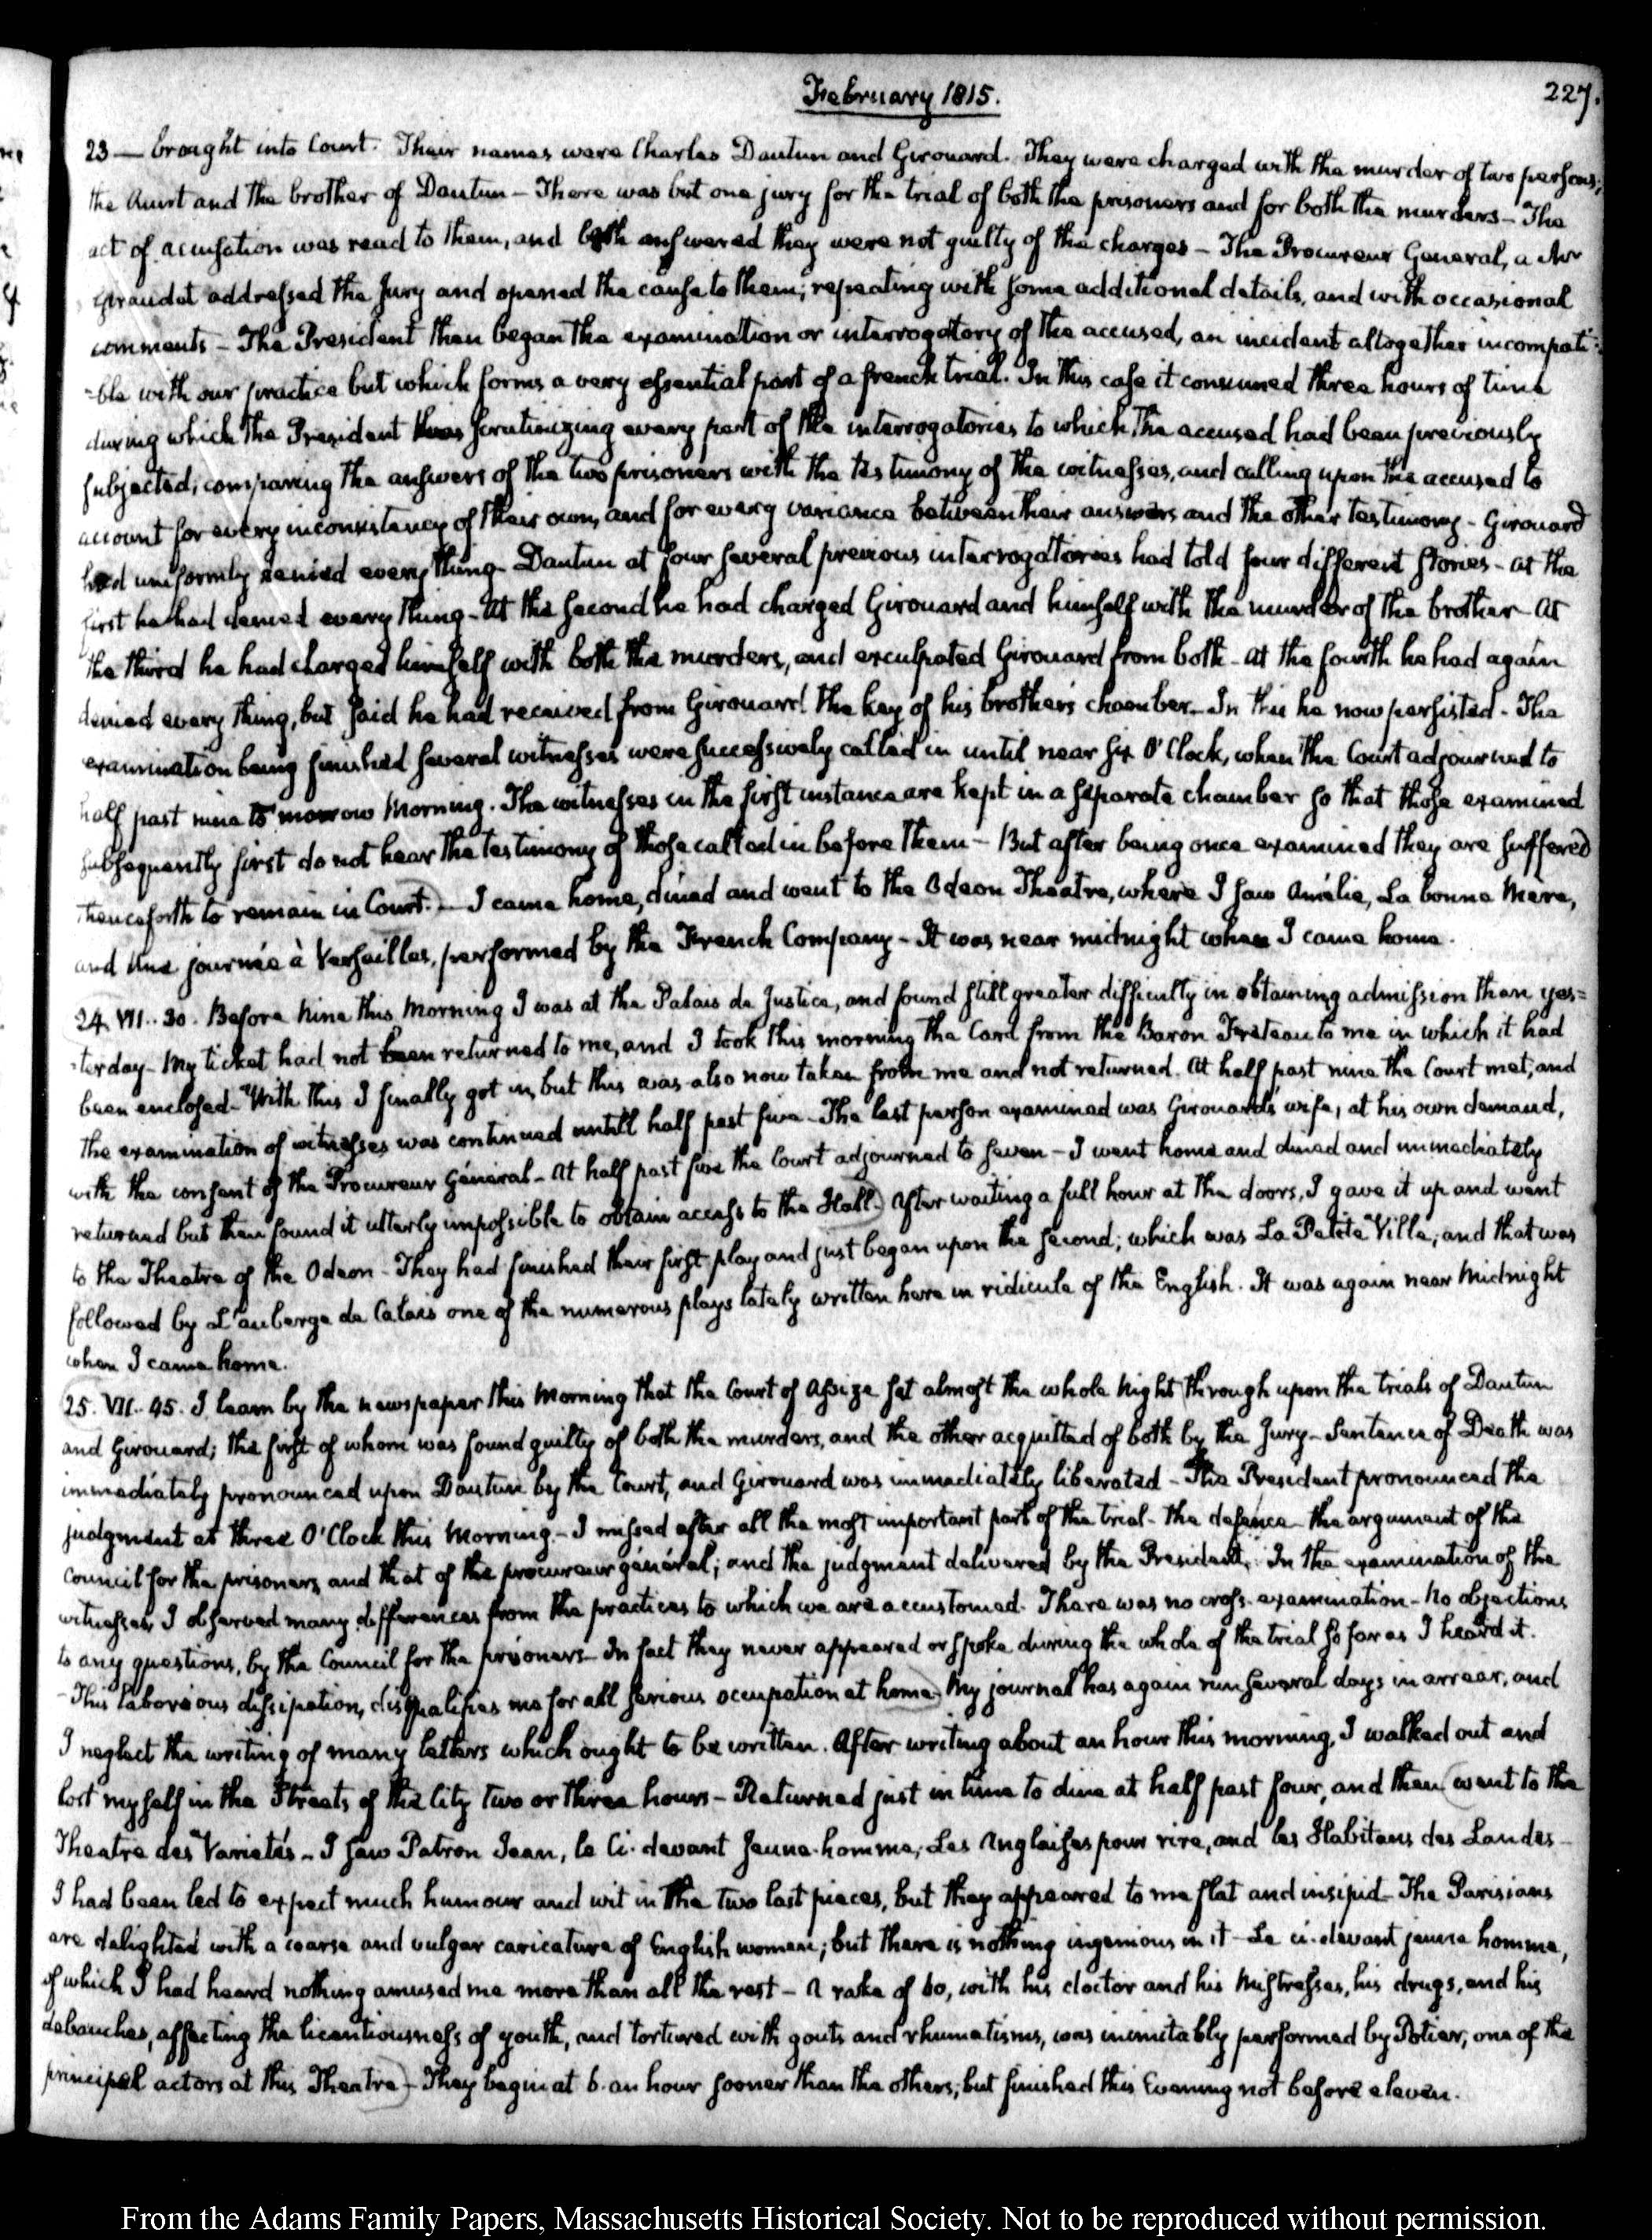 February 1815.
227.
23 — brought into Court. Their names were Charles Dautun and Girouard. They were charged with the murder of two persons;
the Aunt and the brother of Dautun – There was but one jury for the trial of both the prisoners and for both the murders – The
act of accusation was read to them, and both answered they were not guilty of the charges – The Procureur General, a Mr
Giraudet addressed the Jury and opened the cause to them; repeating with some additional details, and with occasional
comments – The President then began the examination or interrogatory of the accused, an incident altogether incompati-
-ble with our practice but which forms a very essential part of a french trial. In this case it consumed three hours of time
during which the President was scrutinizing every part of the interrogatories to which the accused had been previously
subjected; comparing the answers of the two prisoners with the testimony of the witnesses, and calling upon the accused to
account for every inconsistency of their own, and for every variance between their answers and the other testimony – Girouard
had uniformly denied every thing – Dautun at four several previous interrogatories had told four different stories – at the
first he had denied every thing – At the second he had charged Girouard and himself with the murder of the brother – At
the third he had charged himself with both the murders, and exculpated Girouard from both – at the fourth he had again
denied every thing, but said he had received from Girouard the key of his brother's chamber – In this he now persisted – The
examination being finished several witnesses were successively called in until near six O'Clock, when the Court adjourned to
half past nine to morrow Morning. The witnesses in the first instance are kept in a separate chamber so that those examined
subsequently first do not hear the testimony of those called in before them – But after being once examined they are suffered
thenceforth to remain in Court. – I came home, dined and went to the Odeon Theatre, where I saw Amélie, La bonne Mère,
and Une journée à Versailles, performed by the French Company – It was near midnight when I came home.
24. VII.. 30. Before Nine this Morning I was at the Palais de Justice, and found still greater difficulty in obtaining admission than yes=
-terday – My ticket had not been returned to me, and I took this morning the Card from the Baron Freteau to me in which it had
been enclosed – With this I finally got in, but this was also now taken from me and not returned. At half past nine the Court met; and
the examination of witnesses was continued untill half past five – The last person examined was Girouard's wife, at his own demand,
with the consent of the Procureur Général – At half past five the Court adjourned to seven – I went home and dined and immediately
returned but then found it utterly impossible to obtain access to the Hall. After waiting a full hour at the doors, I gave it up and went
to the Theatre of the Odeon – They had finished their first play and just began upon the second; which was La Petite Ville, and that was
followed by L'auberge de Calais one of the numerous plays lately written here in ridicule of the English. It was again near Midnight
when I came home.
25. VII.. 45. I learn by the newspaper this Morning that the Court of Assize sat almost the whole Night through upon the trials of Dautun
and Girouard; the first of whom was found guilty of both the murders, and the other acquitted of both by the Jury – Sentence of Death was
immediately pronounced upon Dautun by the Court, and Girouard was immediately liberated – The President pronounced the
judgment at three O'Clock this Morning. – I missed after all the most important part of the trial – the defence – the argument of the
Council for the prisoners and that of the procureur général; and the judgment delivered by the President. In the examination of the
witnesses I observed many differences from the practices to which we are accustomed. There was no cross-examination – No objections
to any questions, by the Council for the prisoners – In fact they never appeared or spoke during the whole of the trial so far as I heard it.
– This laborious dissipation, disqualifies me for all serious occupation at home. My journal has again run several days in arrear, and
I neglect the writing of many letters which ought to be written. After writing about an hour this morning, I walked out and
lost myself in the Streets of the City two or three hours – Returned just in time to dine at half past four, and then went to the
Theatre des Varietés – I saw Patron Jean, le Ci-devant Jeune-homme, Les Anglaises pour rire, and les Habitans des Landes –
I had been led to expect much humour and wit in the two last pieces, but they appeared to me flat and insipid – The Parisians
are delighted with a coarse and vulgar caricature of English women; but there is nothing ingenious in it – Le ci-devant jeune homme,
of which I had heard nothing amused me more than all the rest – A rake of 60, with his doctor and his Mistresses, his drugs, and his
debauches, affecting the licentiousness of youth, and tortured with gouts and rhumatisms, was inimitably performed by Potier, one of the
principal actors at this Theatre – They begin at 6. an hour sooner than the others; but finished this Evening not before eleven.
From the Adams Family Papers, Massachusetts Historical Society. Not to be reproduced without permission.